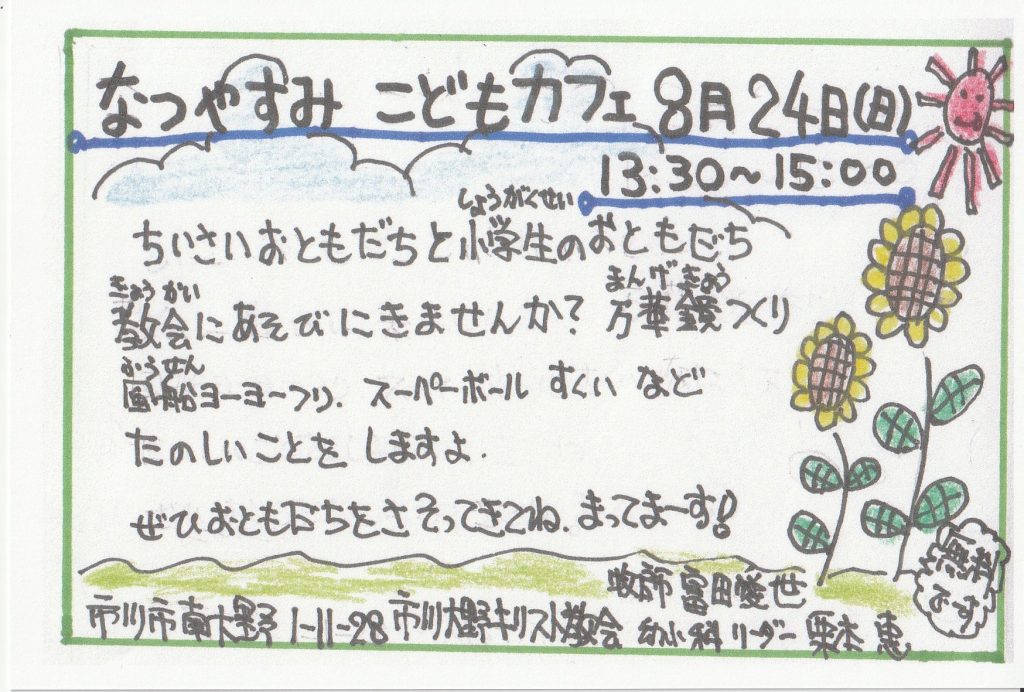 なつやすみ こどもカフェ 8月24日(日)
13:30〜15:00
しょうがくせい
ちいさいおともだちと小学生のおともだち
きょうかい まんげきょう
教会にあそびにきませんか? 万華鏡つくり
ふうせん
風船ヨーヨーつり、スーパーボールすくいなど
たのしいことをしますよ.
ぜひおともだちをさそってきてね、まってまーす!
無料
です
牧師 富田愛世
市川市南大野 1-11-28 市川大野キリスト教会 幼小科リーダー 栗本 恵